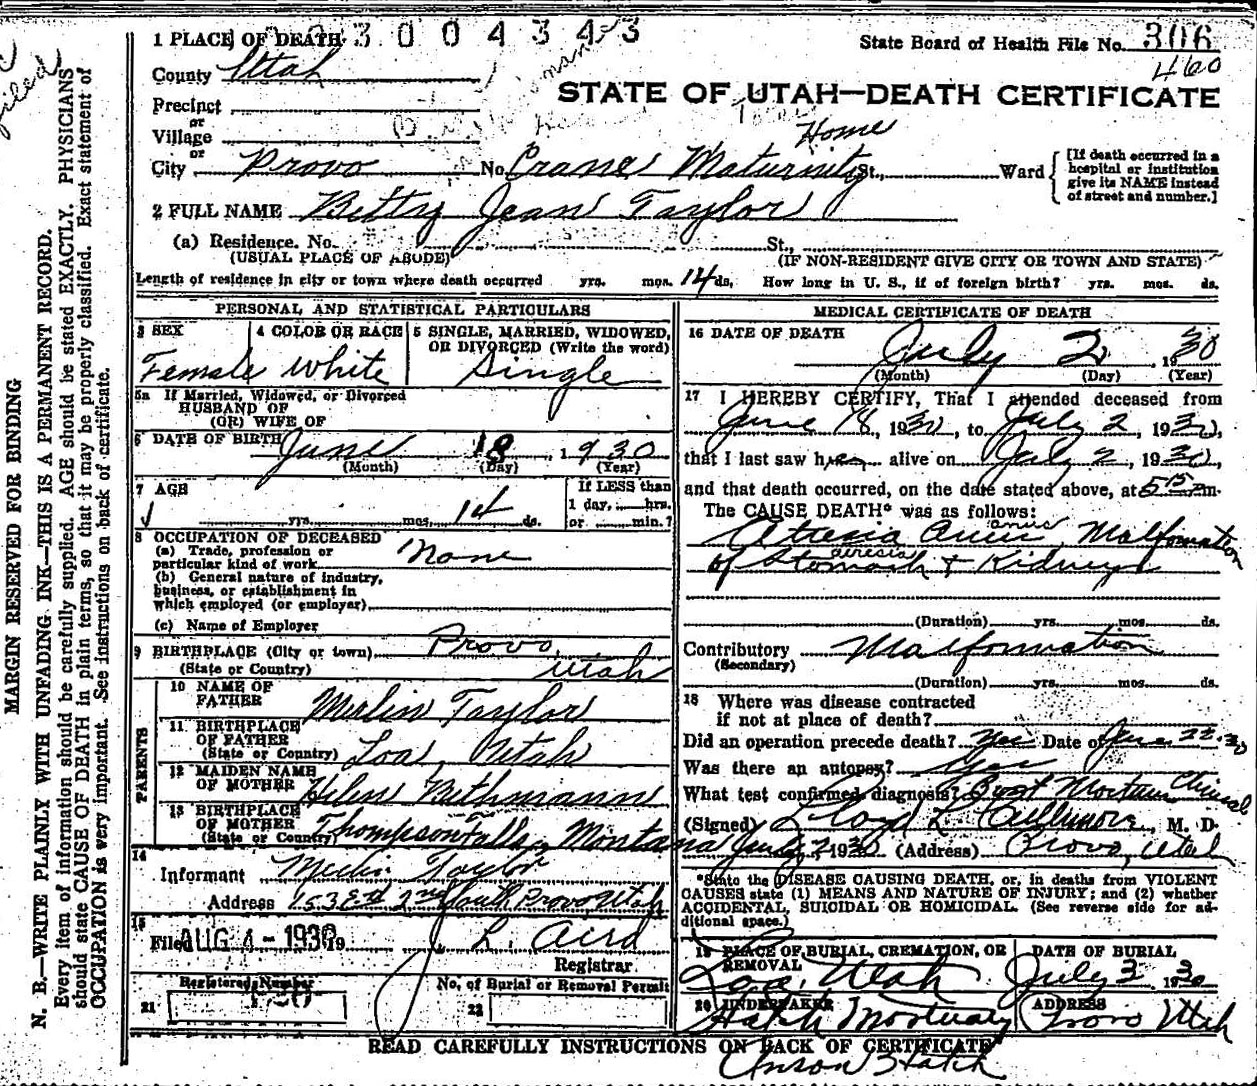 1 PLACE OF DEATH 3004343
State Board of Health File No. 306
460
County Utah
STATE OF UTAH—DEATH CERTIFICATE
Precinct
or
Village
or
Home
City Provo No. Crane Maturnity St., Ward
[If death occurred in a
hospital or institution
give its NAME instead
of street and number.]
2 FULL NAME Betty Jean Taylor
(a) Residence. No. St.,
(USUAL PLACE OF ABODE) (IF NON-RESIDENT GIVE CITY OR TOWN AND STATE)
Length of residence in city or town where death occurred yrs. mos. 14 ds. How long in U. S., if of foreign birth? yrs. mos. ds.
PERSONAL AND STATISTICAL PARTICULARS
3 SEX
Female
4 COLOR OR RACE
White
5 SINGLE, MARRIED, WIDOWED,
OR DIVORCED (Write the word)
Single
5a If Married, Widowed, or Divorced
HUSBAND OF
(OR) WIFE OF
6 DATE OF BIRTH June 18, 1930
(Month) (Day) (Year)
7 AGE
yrs. mos. 14 ds.
If LESS than
1 day, hrs.
or min.?
8 OCCUPATION OF DECEASED
(a) Trade, profession or
particular kind of work None
(b) General nature of industry,
business, or establishment in
which employed (or employer)
(c) Name of Employer
9 BIRTHPLACE (City or town) Provo,
(State or Country) Utah
PARENTS
10 NAME OF
FATHER Merlin Taylor
11 BIRTHPLACE
OF FATHER
(State or Country) Loa, Utah
12 MAIDEN NAME
OF MOTHER Helen Bethmann
13 BIRTHPLACE
OF MOTHER
(State or Country) Thompson Falls, Montana
14
Informant Merlin Taylor
Address 153 East 2nd South Provo Utah
15
Filed AUG 4 - 1930 19 J. L. Aird
Registrar
Registered Number
21 120
No. of Burial or Removal Permit
22
MEDICAL CERTIFICATE OF DEATH
16 DATE OF DEATH
July 2 1930
(Month) (Day) (Year)
17 I HEREBY CERTIFY, That I attended deceased from
June 18, 1930, to July 2, 1930,
that I last saw her alive on July 2, 1930,
and that death occurred, on the date stated above, at 5 15 m.
The CAUSE DEATH* was as follows:
anus
Atresia Anus Malformation
atresia
of Stomach & Kidneys
(Duration) yrs. mos. ds.
Contributory Malformation
(Secondary)
(Duration) yrs. mos. ds.
18 Where was disease contracted
if not at place of death?
Did an operation precede death? Yes Date of June 22, 30
Was there an autopsy? Yes
What test confirmed diagnosis? Post Mortum Clinical
(Signed) Lloyd L. Cullimore, M. D.
July 2, 1930 (Address) Provo, Utah
*State the DISEASE CAUSING DEATH, or, in deaths from VIOLENT
CAUSES state (1) MEANS AND NATURE OF INJURY; and (2) whether
ACCIDENTAL, SUICIDAL OR HOMICIDAL. (See reverse side for ad-
ditional space.)
19 PLACE OF BURIAL, CREMATION, OR
REMOVAL
Loa, Utah
DATE OF BURIAL
July 3 1930
20 UNDERTAKER
Hatch Mortuary
Anson Hatch
ADDRESS
Provo Utah
READ CAREFULLY INSTRUCTIONS ON BACK OF CERTIFICATE
MARGIN RESERVED FOR BINDING
N. B.—WRITE PLAINLY WITH UNFADING INK—THIS IS A PERMANENT RECORD.
Every item of information should be carefully supplied. AGE should be stated EXACTLY. PHYSICIANS
should state CAUSE OF DEATH in plain terms, so that it may be properly classified. Exact statement of
OCCUPATION is very important. See instructions on back of certificate.